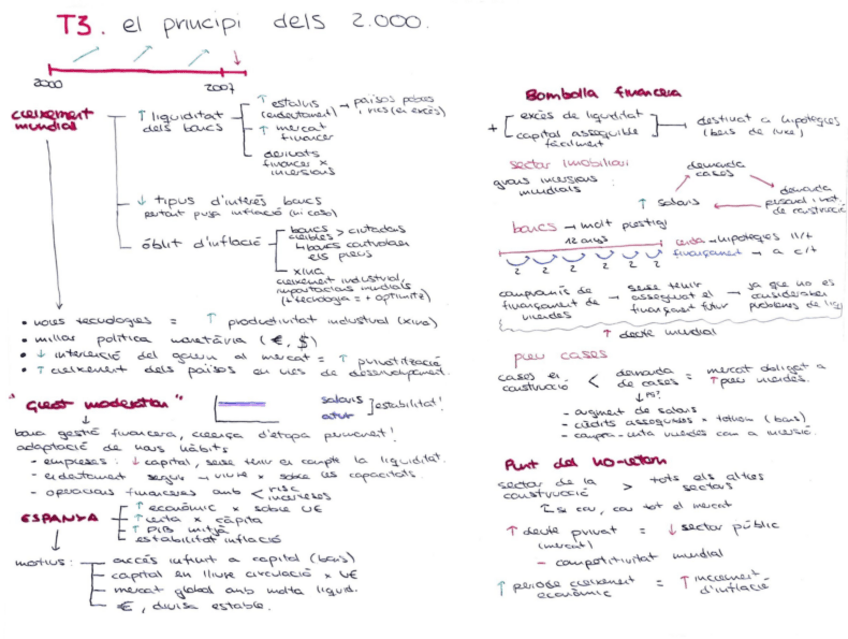 T3. el principi dels 2.000.
2000 2007
creixement mundial
↑ liquiditat dels bancs
↑ estalvis (endeutament) → països pobres i rics (en excés)
↑ mercat financer
derivats financer x inversions
↓ tipus d'interès bancs
pertant puja inflació (ni caso)
òblit d'inflació
bancs creïbles > ciutadans
↳ bancs controlaven els preus
xina
creixement industrial,
importacions mundials
(+ tecnologia = + optimitz)
• noves tecnologies = ↑ productivitat industrial (xina)
• millor política monetària (€, $)
• ↓ intervenció del govern al mercat = ↑ privatització
• ↑ creixement dels països en vies de desenvolupament.
"Great moderation"
salaris
atur
estabilitat!
bona gestió financera, creença d'etapa permanent!
adaptació de nous hàbits
- empreses: ↓ capital, sense tenir en compte la liquiditat.
- endeutament segur → viure x sobre les capacitats.
- operacions financeres amb < risc
interessos
ESPANYA
↑ econòmic x sobre UE
↑ renta x càpita
↑ PIB mitjà
estabilitat inflació
motius:
accés infinit a capital (bancs)
capital en lliure circulació x UE
mercat global amb molta liquid.
€, divisa estable.
Bombolla financera
+ excés de liquiditat
capital assequible fàcilment
destinat a hipotegies
(bens de luxe)
sector imobiliari
grans inversions mundials:
↑ salaris
demanda cases
demanda personal i mat. de construcció
bancs → molt prestigi
12 anys
renda → hipotegies ll/t
finançament → a c/t
2 2 2 2 2 2
compromís de finançament de vivendes → sense tenir assegurat el finançament futur → ja que no es consideraven problemes de liq
↑ deute mundial
preu cases
cases en construcció < demanda de cases = mercat obligat a ↑ preu vivendes.
↓ PQ?
- augment de salaris
- crèdits assequibles x tothom (bancs)
- compra-venta vivendes com a inversió.
Punt del no-retorn
sector de la construcció > tots els altres sectors
↳ si cau, cau tot el mercat
↑ deute privat = ↓ sector públic
(mercat)
- competitivitat mundial
↑ període creixement econòmic = ↑ increment d'inflació